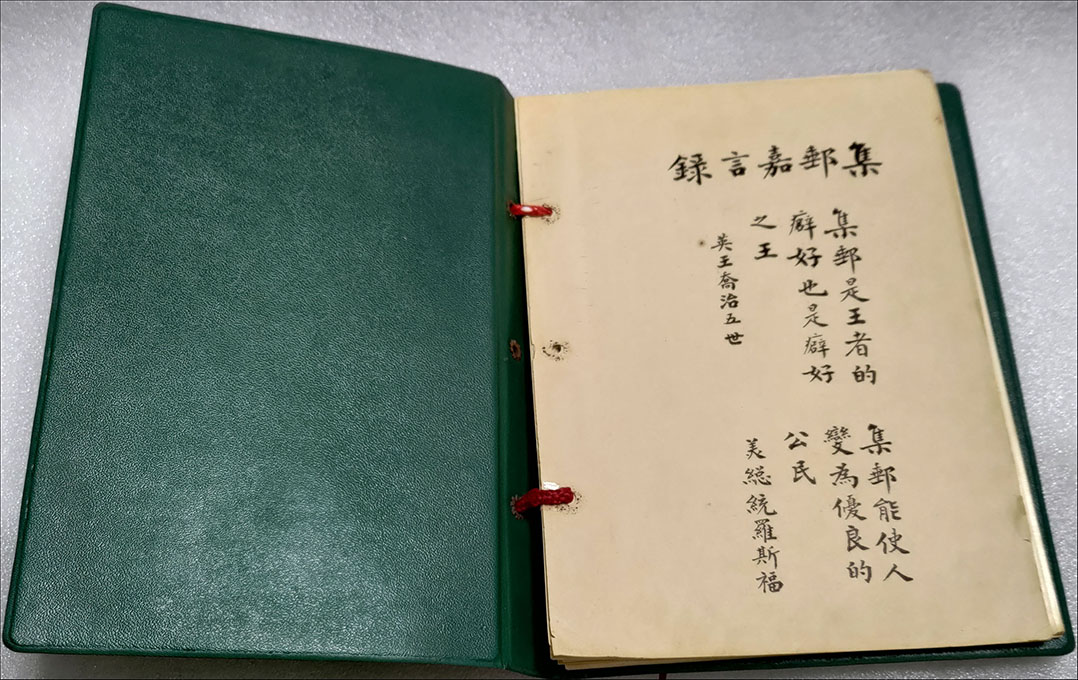 集郵嘉言録
集郵是王者的
癖好也是癖好
之王
英王喬治五世
集郵能使人
變為優良的
公民
美総統羅斯福